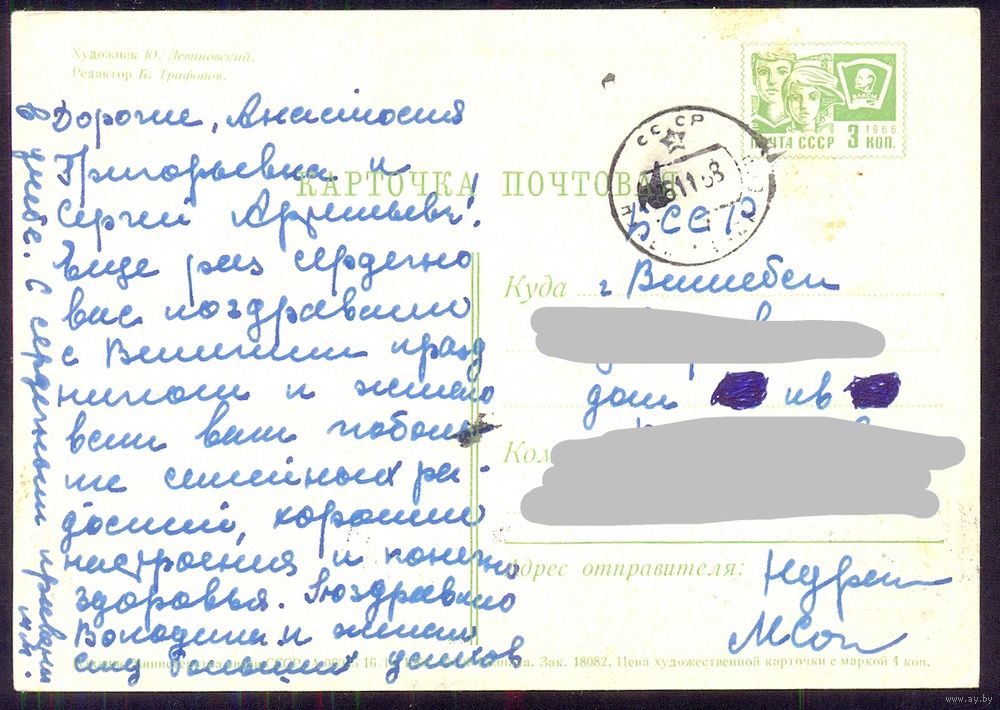 Художник Ю. Левиновский.
Редактор Б. Трифонов.
ВЛКСМ
1966
ПОЧТА СССР 3 КОП.
КАРТОЧКА ПОЧТОВАЯ
СССР
БССР
Дорогие, Анастасия
Григорьевна и
Сергей
Еще раз сердечно
вас поздравляю
с Великим празд
ником и желаю
всем вам поболь
ше семейных ра-
достей, хорошего
настроения и конечно
здоровья. Поздравляю
и желаю
ему больших успехов
в учебе. С сердечным приветом
Куда г Витебск
дом кв
Адрес отправителя:
Зак. 18082. Цена художественной карточки с маркой 4 коп.
www.ay.by